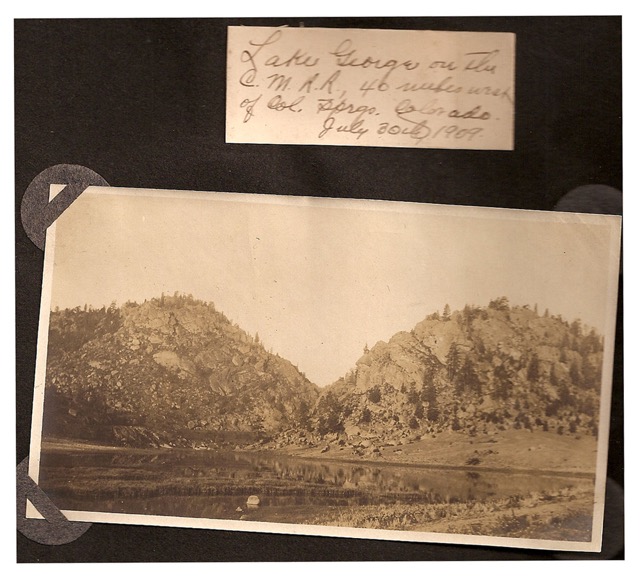 Lake George on the
C. M. R.R., 40 miles west
of Col. Sprgs. Colorado.
July 30th, 1909.